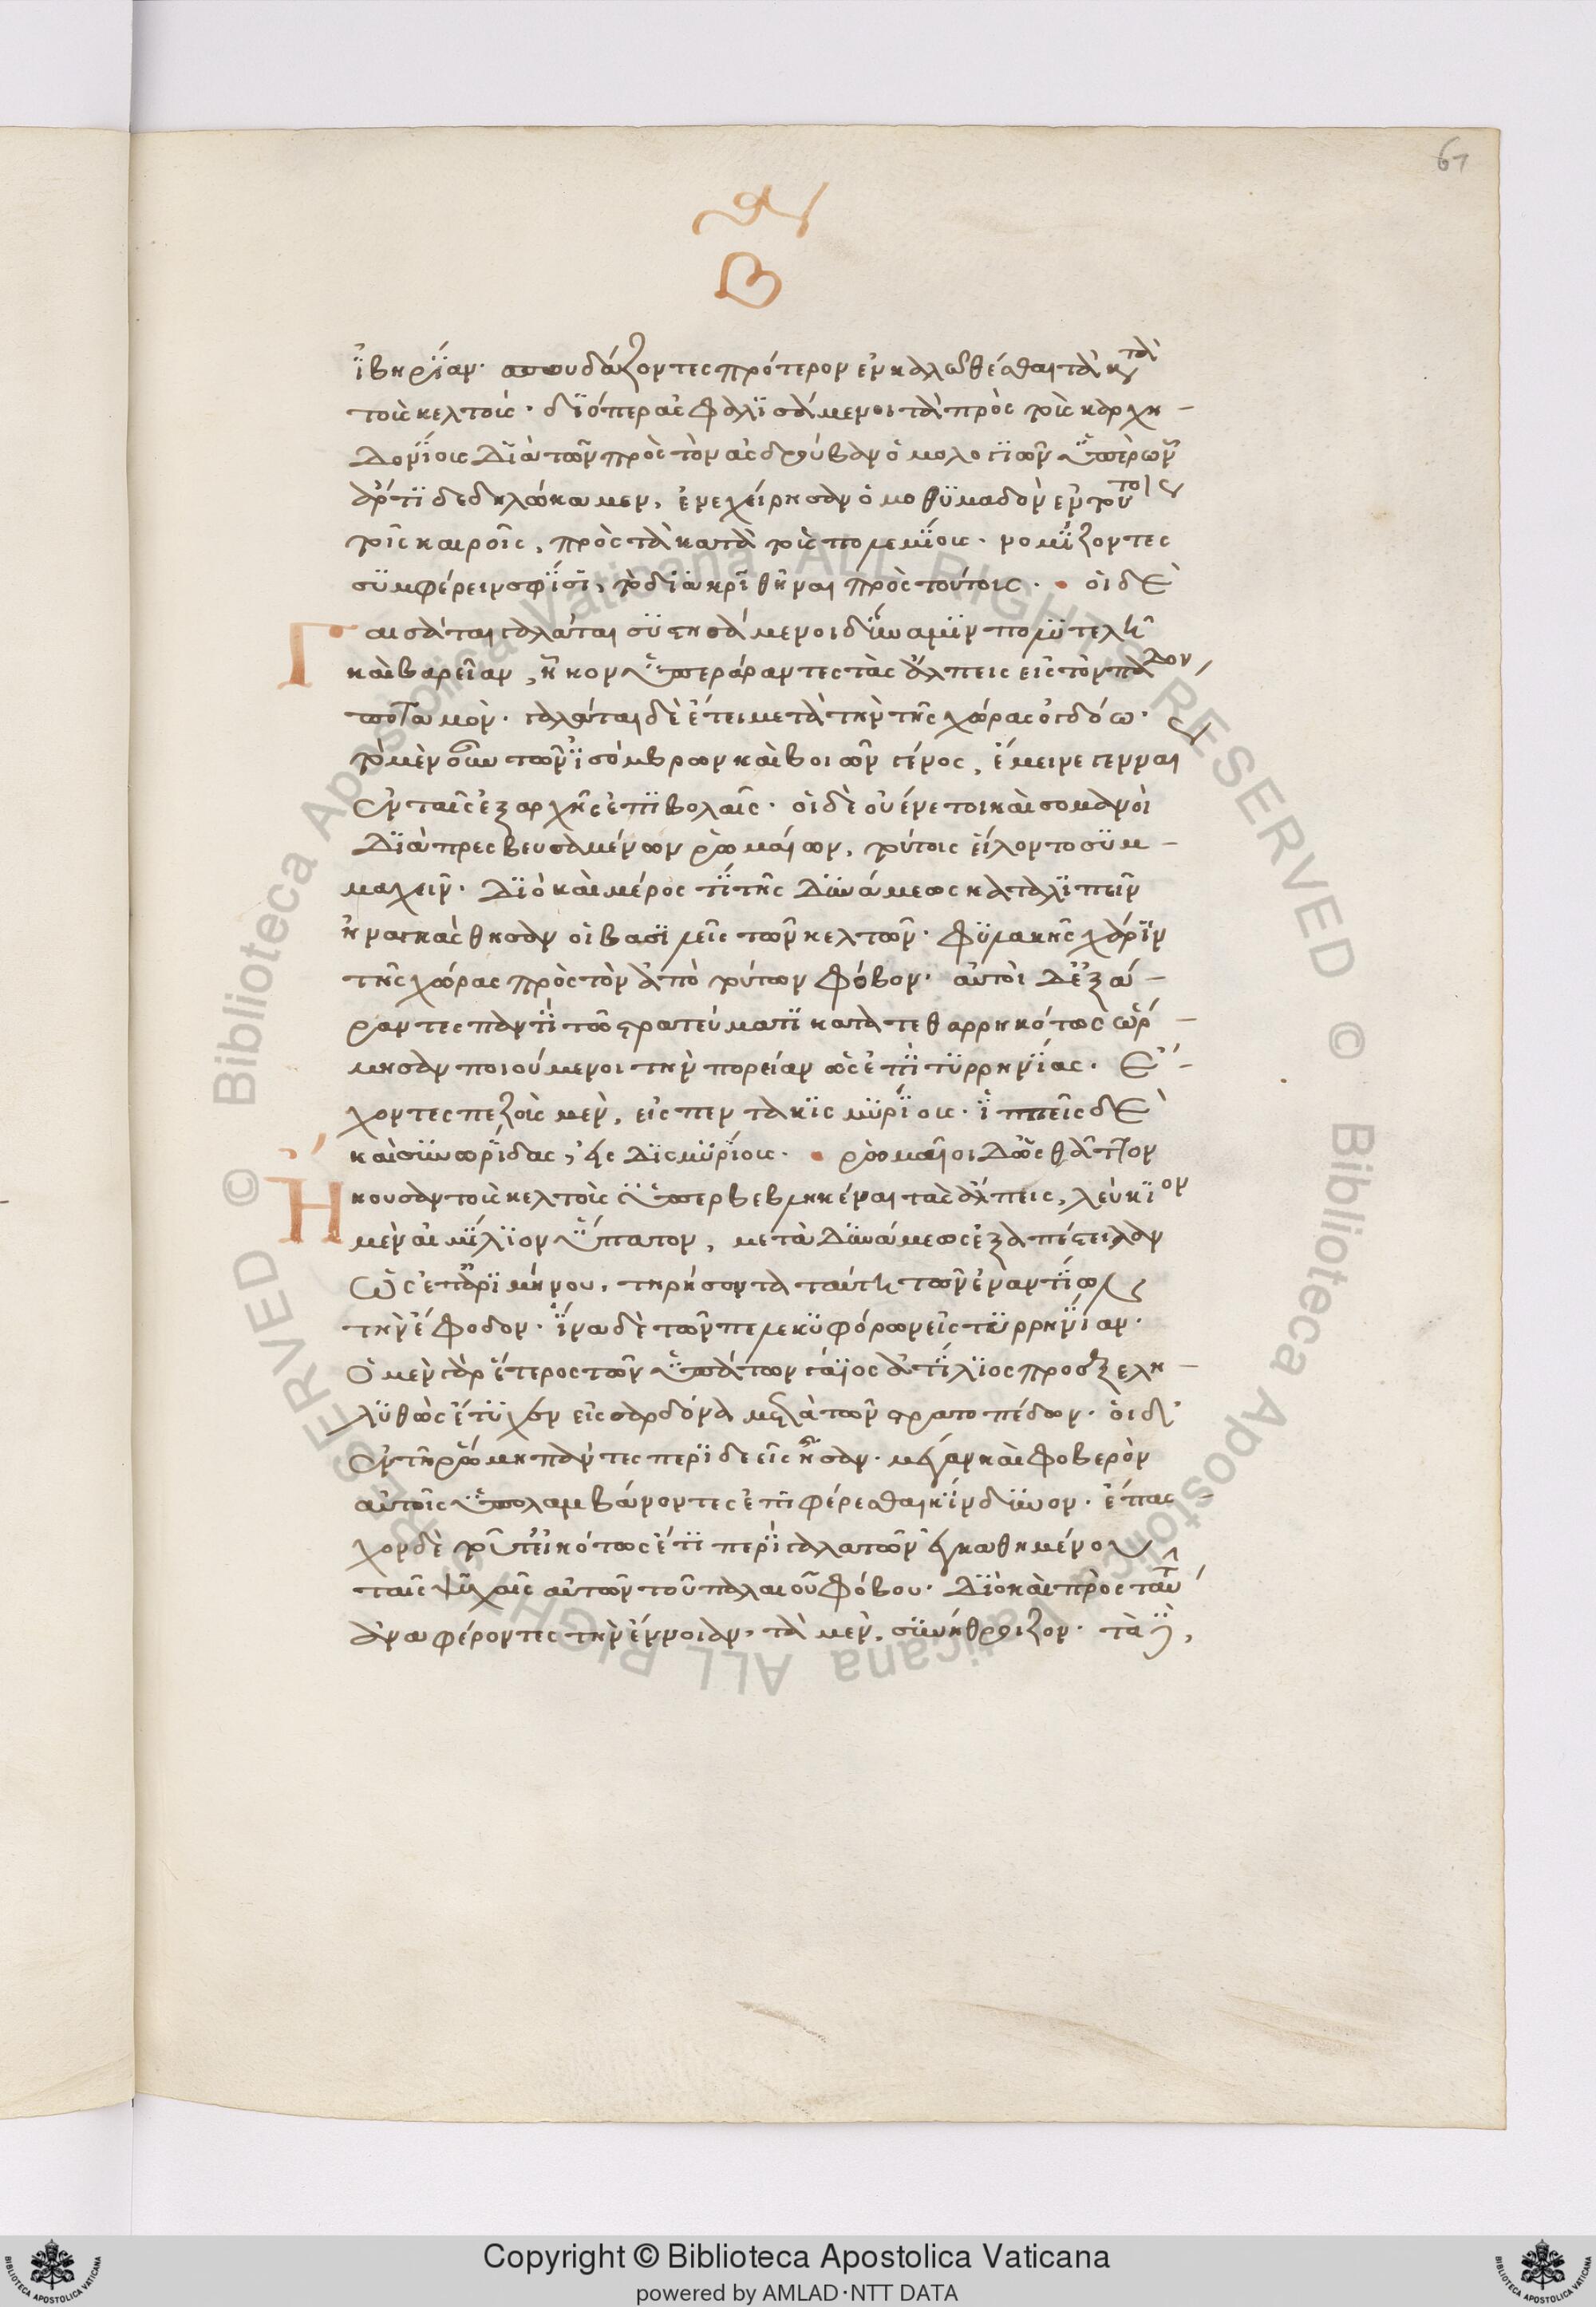 67
Β
ἰβηρίαν· σπουδάζοντες πρότερον ἐν καλῷ θέσθαι τὰ κατὰ
τοὺς κελτούς· διόπερ ἀσφαλισάμενοι τὰ πρὸς τοὺς καρχη-
δονίους διὰ τῶν πρὸς τὸν ἀσδρούβαν ὁμολογιῶν ὑπὲρ ὧν
ἄρτι δεδηλώκαμεν, ἐνεχείρησαν ὁμοθυμαδὸν ἐν τούτοις
τοῖς καιροῖς, πρὸς τὰ κατὰ τοὺς πολεμίους· νομίζοντες
συμφέρειν σφίσι, τὸ διακριθῆναι πρὸς τούτους· οἱ δὲ
Γαισάται γαλάται συστησάμενοι δύναμιν πολυτελῆ
καὶ βαρεῖαν, ἧκον ὑπεράραντες τὰς ἄλπεις εἰς τὸν πάδον
ποταμὸν· γαλάται δὲ ἔτει μετὰ τὴν τῆς χώρας ὀγδόῳ·
τὸ μὲν οὖν τῶν ἰσόμβρων καὶ βοιῶν γένος, ἔμεινε γενναί
ἐν ταῖς ἐξ ἀρχῆς ἐπιβολαῖς· οἱ δὲ οὐένετοι καὶ γομάνοι
διαπρεσβευσαμένων ῥωμαίων, τούτοις εἵλοντο συμ-
μαχεῖν· διὸ καὶ μέρος τι τῆς δυνάμεως καταλιπεῖν
ἠναγκάσθησαν οἱ βασιλεῖς τῶν κελτῶν· φυλακῆς χάριν
τῆς χώρας πρὸς τὸν ἀπὸ τούτων φόβον· αὐτοὶ δὲ ἐξά-
ραντες παντὶ τῷ στρατεύματι κατατεθαρρηκότως ὥρ-
μησαν ποιούμενοι τὴν πορείαν ὡς ἐπὶ τυρρηνίας· ἔ-
χοντες πεζοὺς μὲν, εἰς πεντακισμυρίους· ἱππεῖς δὲ
καὶ συνωρίδας, εἰς δισμυρίους· ῥωμαῖοι δ' ὡς θᾶττον
Ἤκουσαν τοὺς κελτοὺς ὑπερβεβληκέναι τὰς ἄλπεις, λεύκιον
μὲν αἰμίλιον ὕπατον, μετὰ δυνάμεως ἐξαπέστειλαν
ὡς ἐπ' ἀριμήνου, τηρήσοντα ταύτῃ τῶν ἐναντίων
τὴν ἔφοδον· ἕνα δὲ τῶν πελεκυφόρων εἰς τυρρηνίαν·
ὁ μὲν γὰρ ἕτερος τῶν ὑπάτων γάϊος ἀτίλιος προεξελη-
λυθὼς ἔτυχεν εἰς σαρδόνα μετὰ τῶν στρατοπέδων· οἱ δ'
ἐν τῇ ῥώμῃ πάντες περιδεεῖς ἦσαν· μέγαν καὶ φοβερὸν
αὐτοῖς ὑπολαμβάνοντες ἐπιφέρεσθαι κίνδυνον· ἔπασ-
χον δὲ τοῦτ' εἰκότως ἔτι περὶ γαλατῶν ἐγκαθημένου
ταῖς ψυχαῖς αὐτῶν τοῦ παλαιοῦ φόβου· διὸ καὶ πρὸς ταύτ
ἀναφέροντες τὴν ἔννοιαν, τὰ μὲν, συνήθροιζον· τὰ δὲ,